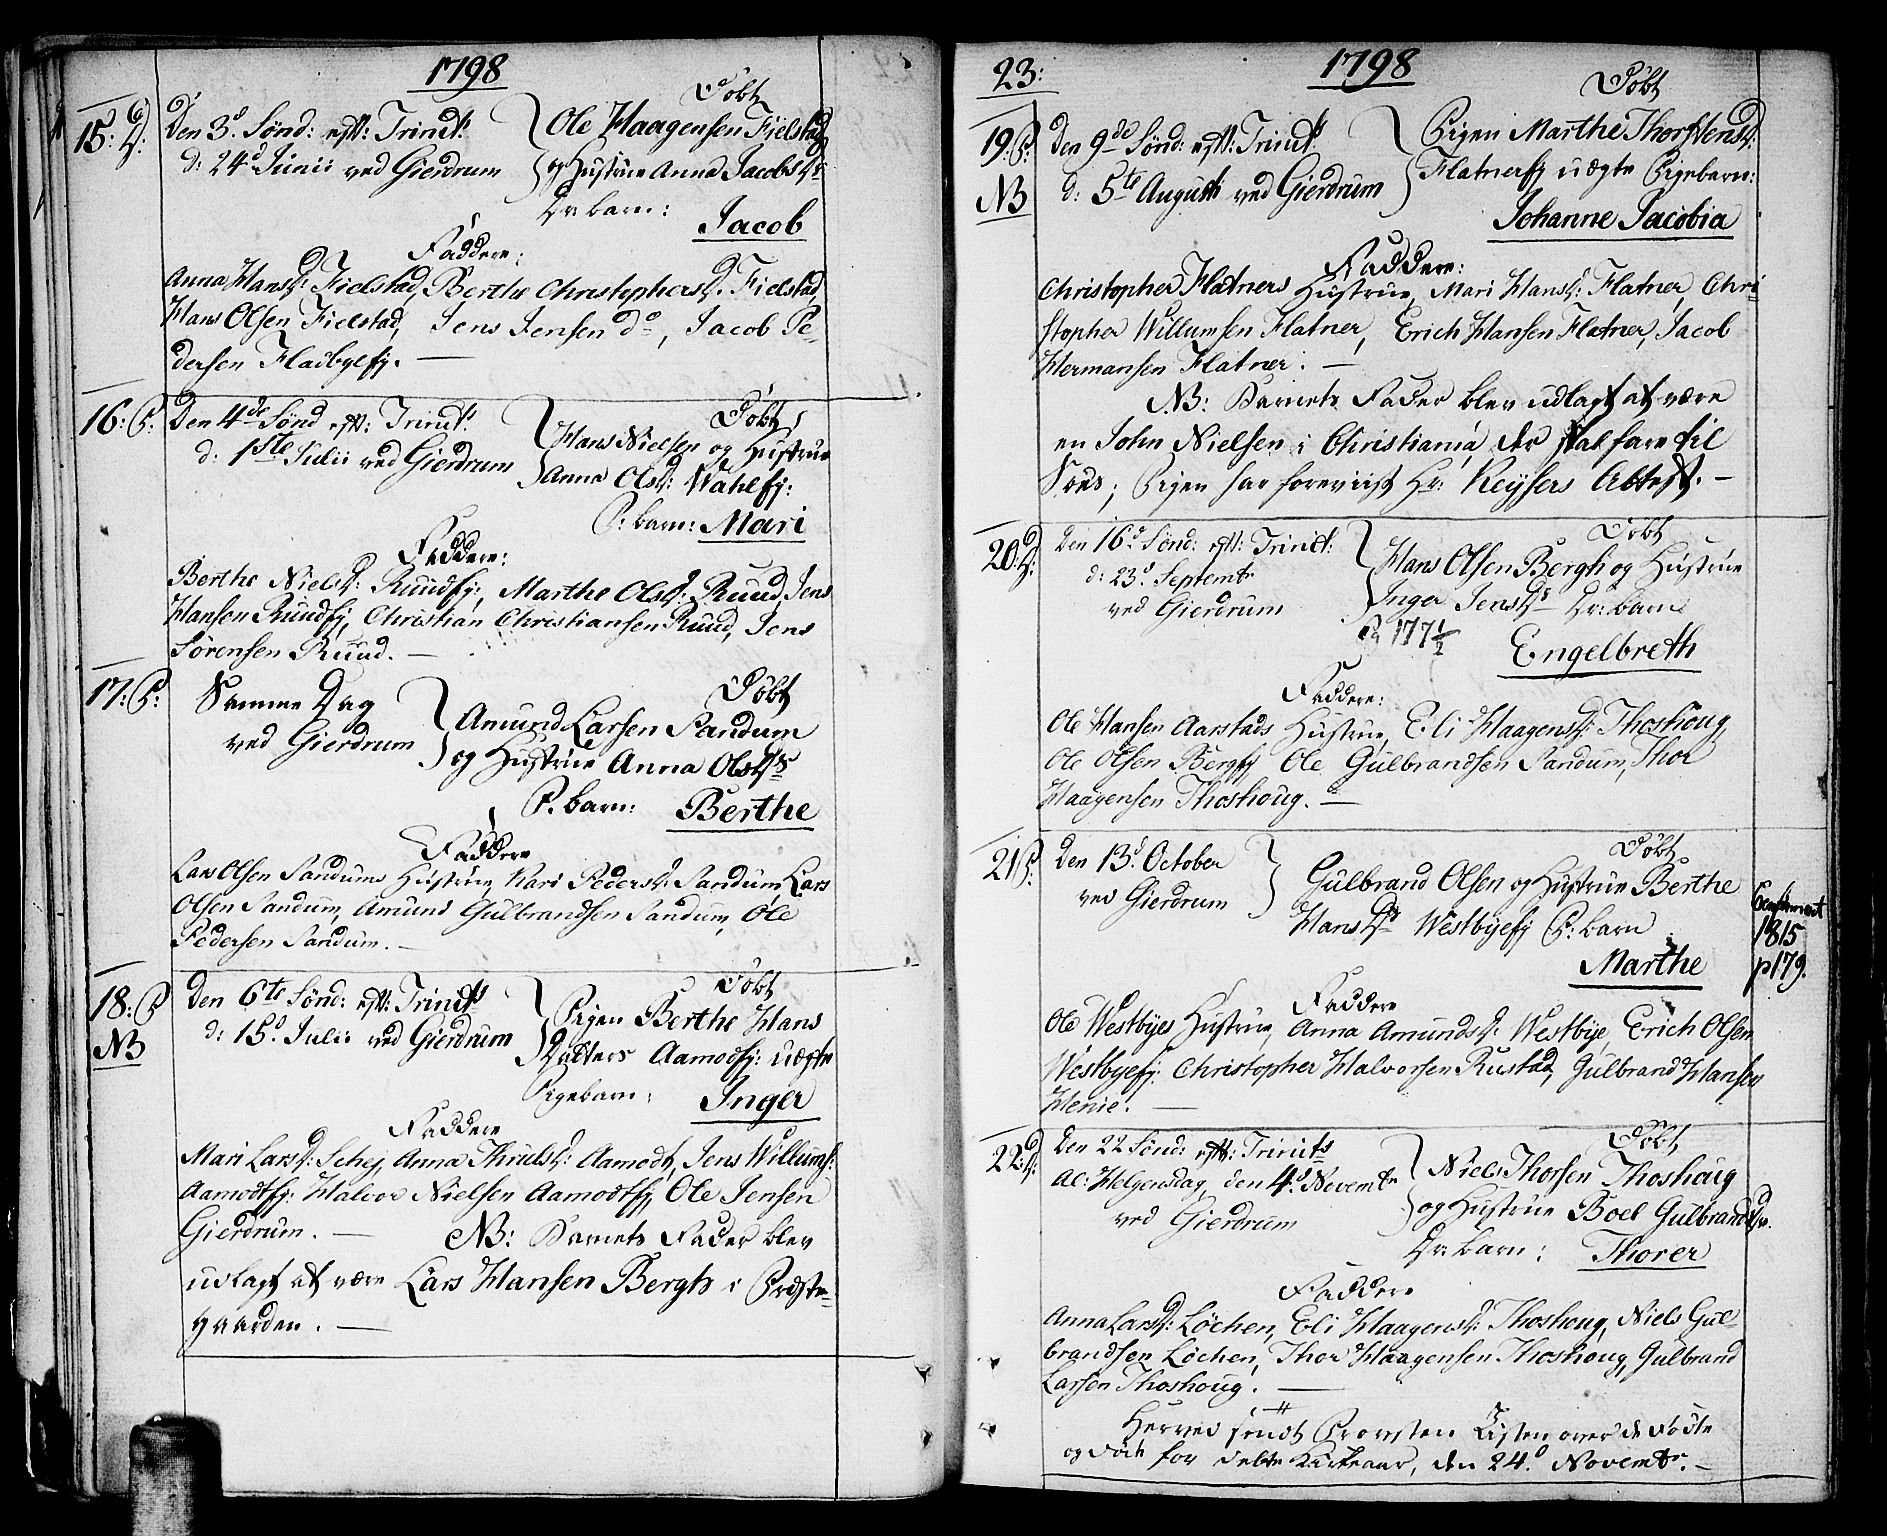 1798
Døbt
15: D:
Den 3d. Sønd: eft: Trinit:
d: 24d Junii ved Gierdrum
Ole Haagensen Fielstad
og Hustrue Anna Jacobs Dr
Dr. barn:
Jacob
Faddere:
Anna Hansd: Fielstad, Berthe Christophersd. Fielstad,
Hans Olsen Fielstad, Jens Jensen do, Jacob Pe-
dersen Fladbyefj. —
16: P:
Den 4de Sønd eft: Trinit:
d: 1ste Julii ved Gierdrum
Døbt
Hans Nielsen og Hustrue
Anna Olsd: Wahlefj:
P: barn: Mari
Faddere:
Berthe Nielsd: Ruudfj:, Marthe Olsd: Ruud, Jens
Hansen Ruudfj, Christian Christiansen Ruud, Jens
Sørensen Ruud. —
17: P:
Samme Dag
ved Gierdrum
Døbt
Amund Larsen Sandum
og Hustrue Anna Olsdr
P. barn: Berthe
Faddere
Lars Olsen Sandums Hustrue, Kari Pedersd: Sandum, Lars
Olsen Sandum, Amund Gulbrandsen Sandum, Ole
Pedersen Sandum. —
18: P
NB
Den 6te Sønd: eft: Trinit:
d: 15d. Julii ved Gierdrum
Døbt
Pigen Berthe Hans
Datters Aamodtfj: uægte
Pigebarn: Inger
Faddere
Mari Larsd: Schej, Anna Thrulsd: Aamodt, Jens Willums:
Aamodtfj: Halvor Nielsen Aamodtfj, Ole Jensen
Gierdrum. — NB: Barnets Fader blev
udlagt at være Lars Hansen Bergh i Præste-
gaarden. —
23:
1798
Døbt
19: P:
NB
Den 9de Sønd: eft: Trinit:
d: 5te August ved Gierdrum
Pigen Marthe Thorstensd:
Flatnerfj uægte Pigebarn:
Johanne Jacobia
Faddere:
Christopher Flatners Hustrue, Mari Hansd: Flatner, Chri-
stopher Willumsen Flatner, Erich Hansen Flatner, Jacob
Hermansen Flatner. —
NB: Barnets Fader blev udlagt at være
en John Nielsen i Christiania, der skal fare til
Søes; Pigen har foreviist Hr: Keysers Attest. —
20: D:
Den 16d. Sønd: eft: Trinit:
d: 23d. Septembr
ved Gierdrum
Døbt
Hans Olsen Bergh og Hustrue
Inger Jens Dr Dr: barn
177 1/2
Engelbreth
Faddere:
Ole Hansen Aarstads Hustrue, Eli Haagensd: Thoshoug,
Ole Olsen Bergfj, Ole Gulbrandsen Sandum, Thor
Haagensen Thoshoug. —
21 P:
Den 13d. October
ved Gierdrum
Døbt
Gulbrand Olsen og Hustrue Berthe
Hans Dr Westbyefj P: barn
Marthe
1815
p 179.
Faddere
Ole Westbyes Hustrue, Anna Amundsd: Westbye, Erich Olsen
Westbyefj: Christopher Halvorsen Rustad, Gulbrand Hansen
Henie. —
22: D:
Den 22 Sønd: eft: Trinits
Al: Helgensdag, den 4d. Novembr
ved Gierdrum
Døbt
Niels Thorsen Thoshoug
og Hustrue Boel Gulbrands Dr.
Dr: barn: Thorer
Faddere
Anna Larsd: Løchen, Eli Haagensd: Thoshoug, Niels Gul-
brandsen Løchen, Thor Haagensen Thoshoug, Gulbrand
Larsen Thoshoug. —
Herved sendt Provsten Listen over de Fødte
og Døde for dette Kirkeaar, den 24d. Novembr. —